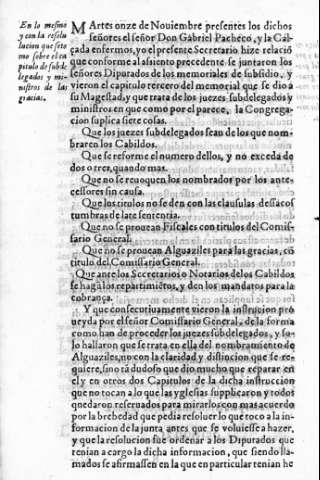 En lo mesmo
y con la resolu
lucion que se to
mo sobre el ca
pitulo de subde
legados y mi-
nistros de las
gracias.
MArtes onze de Nouiembre presentes los dichos
señores el señor Don Gabriel Pacheco, y la Cal-
çada enfermos, yo el presente Secretario hize relaciõ
que conforme al assiento precedente se juntaron los
señores Dipurados de los memoriales de subsidio, y
vieron el capitulo tercero del memorial que se dio a
su Magestad, y que trata de los juezes subdelegados y
ministros en que como por el parece, la Congrega-
cion suplica siete cosas.
Que los juezes subdelegados sean de los que nom-
braren los Cabildos.
Que se reforme el numero dellos, y no exceda de
dos o tres, quando mas.
Que no se reuoquen los nombrados por los ante-
cessores sin causa.
Que los titulos no se den con las clausulas dessacos
tumbradas de late sententia.
Que no se prouean Fiscales con titulos del Comis-
sario General.
Que no se prouean Alguaziles para las gracias, cõ
titulo del Comissario General.
Que ante los Secretarios o Notarios delos Cabildos
se hagã los repartimiẽtos, y den los mandatos para la
cobrança.
Y que consecutiuamente vieron la instrucion pro
ueyda por el señor Comissario General, de la forma
como han de proceder los juezes subdelegados, y so-
lo hallaron que se trata en ella del nombramiento de
Alguaziles, no con la claridad y distincion que se re-
quiere, sino tã dudoso que dio mucho que reparar en
el y en otros dos Capitulos de la dicha instruccion
que no tocan a lo que las yglesias supplicaron y todos
quedaron reseruados para mirarlos con mas acuerdo
por la brebedad que pedia resoluer lo que toco a la in-
formacion de la junta antes que se voluiesse a hazer,
y que la resolucion fue ordenar a los Dipurados que
tenian a cargo la dicha informacion, que siendo lla-
mados se afirmassen en la que en particular tenian he